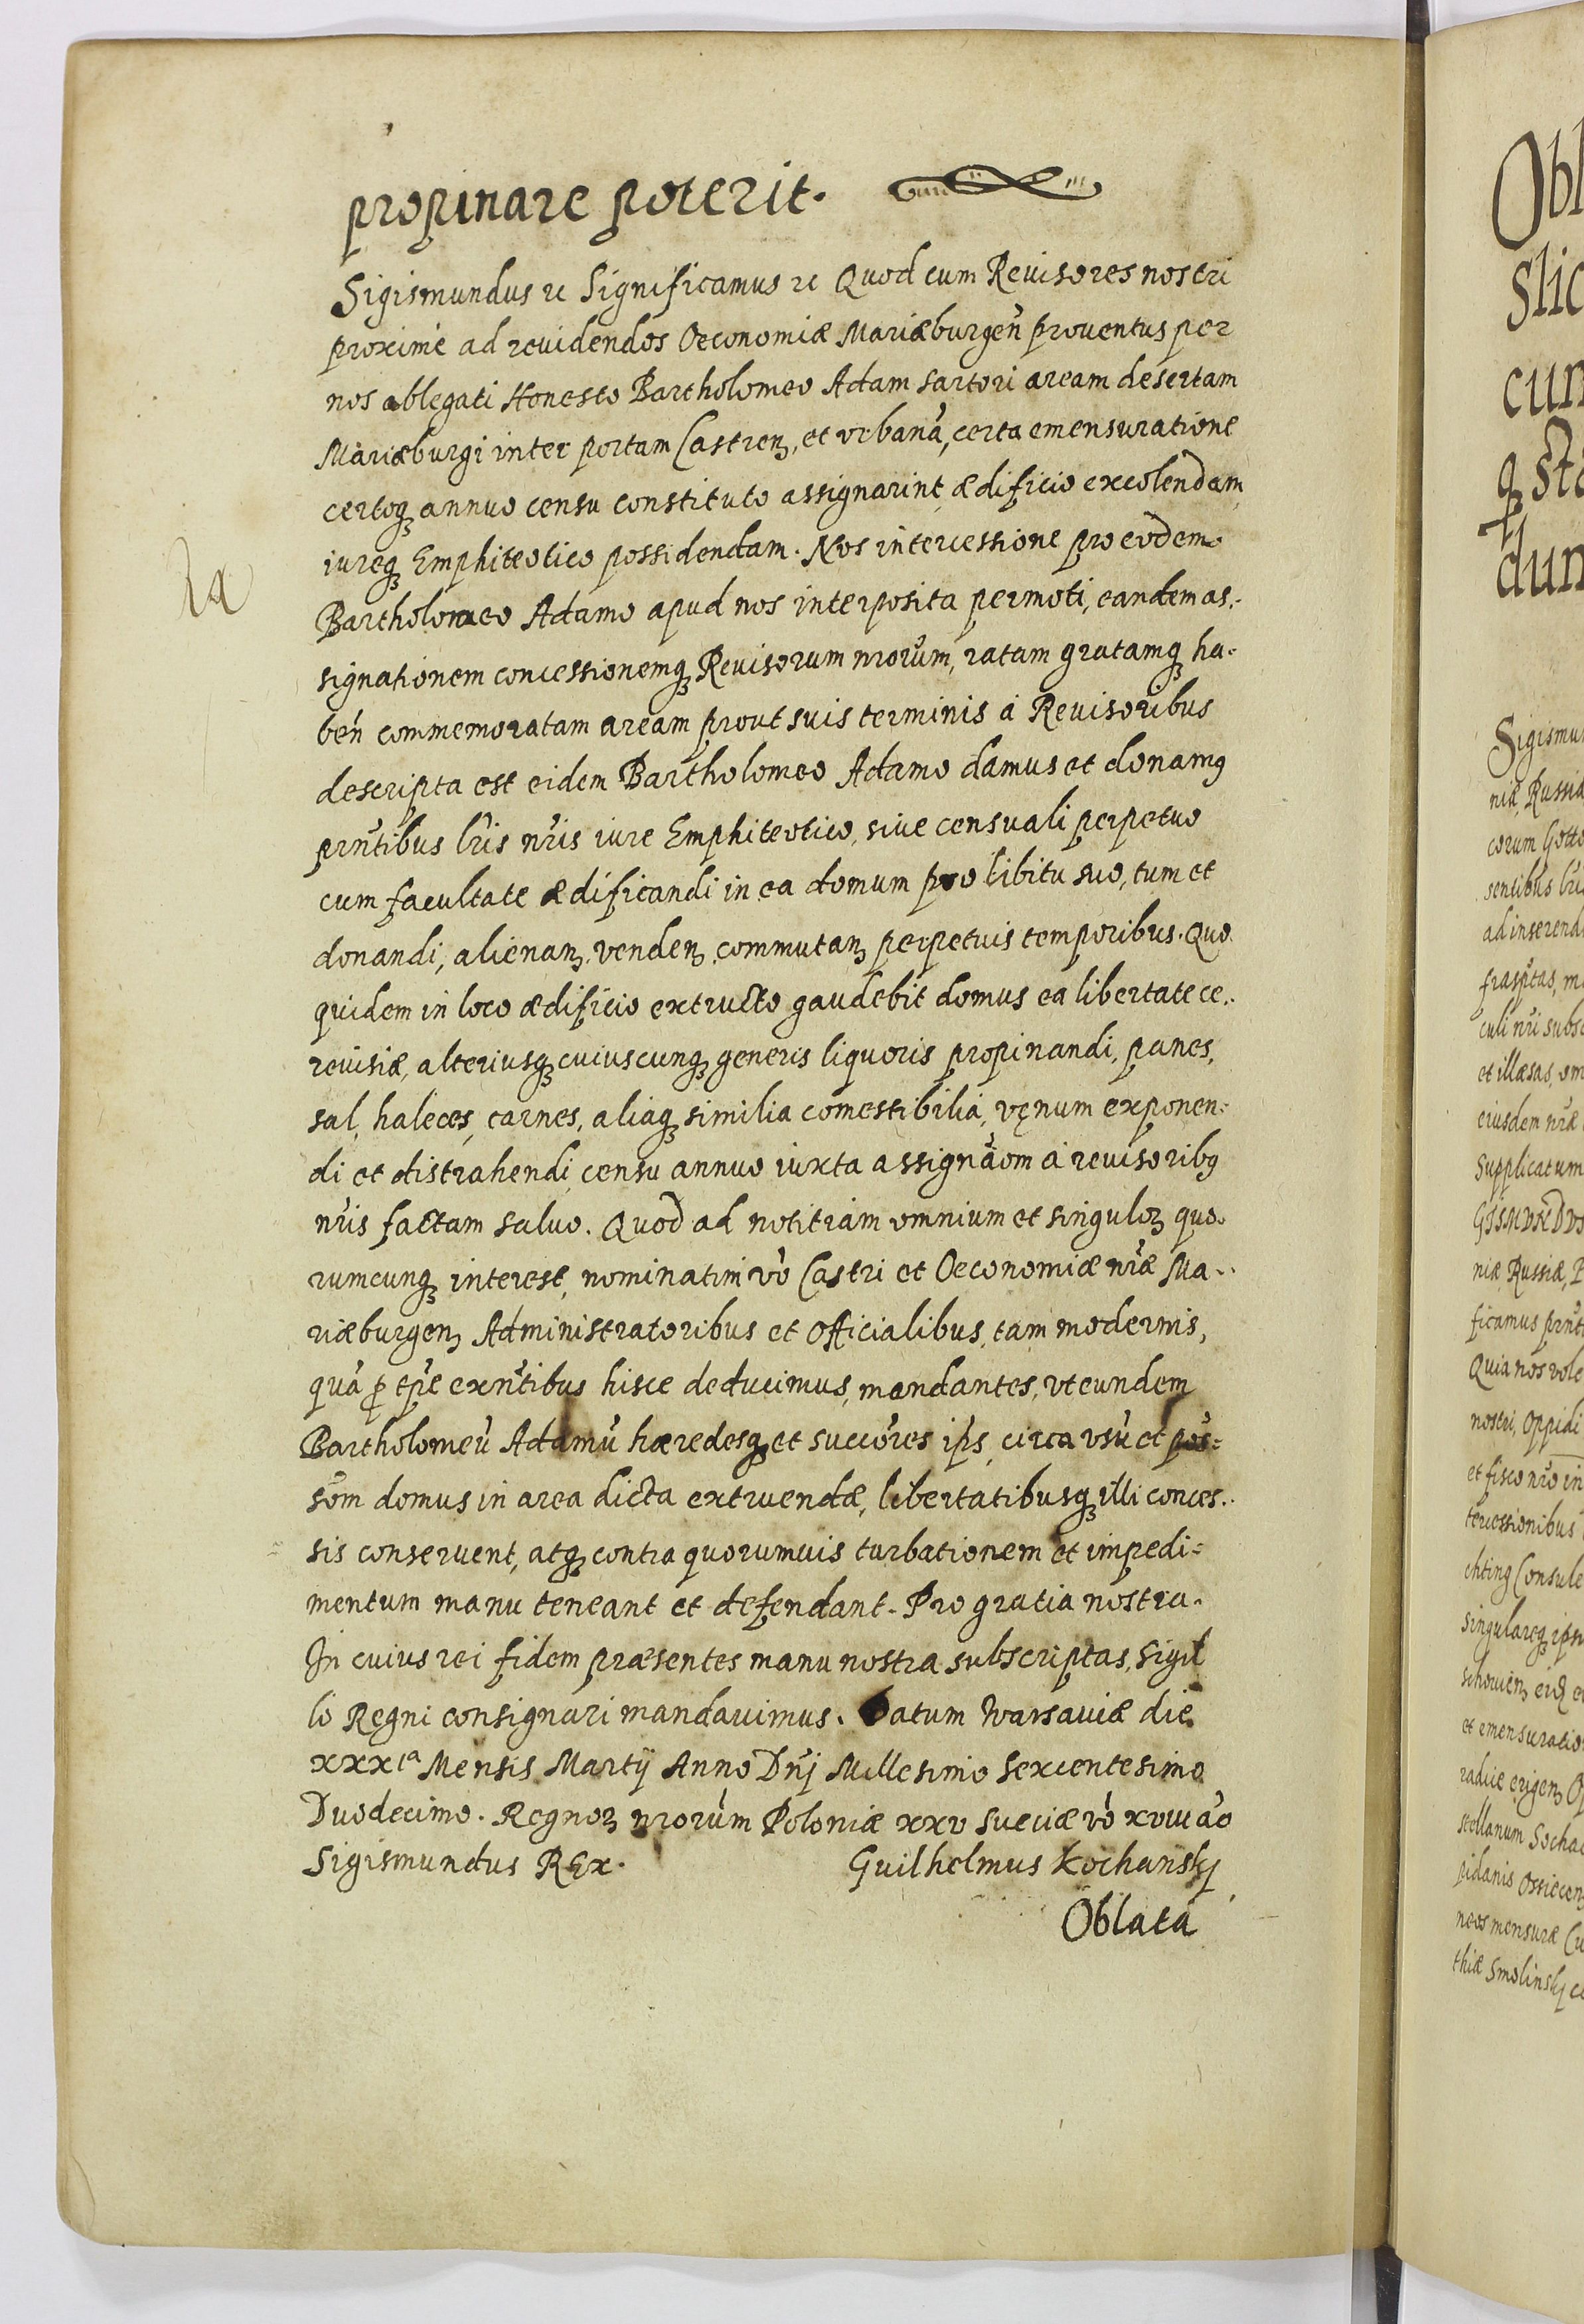 propinare poterit.
Sigismundus ꝛc Significamus ꝛc Quod cum Reuisores nostri
proximè ad reuidendos Oeconomiæ Mariæburgeñ prouentus per
nos ablegati Honesto Bartholomeo Adam sartori aream desertam
Mariæburgi inter portam Castrenꝫ, et vrbanã, certa emensuratione
certoqꝫ annuo censu constituto assignarint, ædificio excolendam,
iureqꝫ Emphiteotico possidendam. Nos intercessione pro eodem
Bartholomeo Adamo apud nos interposita permoti, eandem as-
signationem concessionemqꝫ Reuisorum nrorũm, ratam gratamqꝫ ha-
beñ commemoratam aream prout suis terminis à Reuisoribus
descripta est eidem Bartholomeo Adamo damus et donamꝰ
prñtibus lr̃is nr̃is iure Emphiteotico, siue censuali perpetuo
cum facultate ædificandi in ea domum pro libitu suo, tum et
donandi, alienanꝫ, vendenꝫ, commutanꝫ perpetuis temporibus. Quo
quidem in loco ædificio extructo gaudebit domus ea libertate ce-
reuisiæ, alteriusqꝫ cuiuscunqꝫ generis liquoris propinandi, panes,
sal, haleces, carnes, aliaqꝫ similia comestibilia, vęnum exponen-
di et distrahendi, censu annuo iuxta assignãom à reuisoribꝰ
nr̃is factam saluo. Quod ad notitiam omnium et singuloꝝ quo-
rumcunqꝫ interest, nominatim vò Castri et Oeconomiæ nr̃æ Ma-
riæburgenꝫ Administratoribus et Officialibus, tam modernis,
quã ꝓ tp̃e exñtibus hisce deducimus, mandantes, vt eundem
Bartholomeũ Adamũ hæredesqꝫ et succõres ip̃s, circa vsũ et pos-
som̃ domus in area dicta extruendæ, libertatibusqꝫ illi conces-
sis conseruent, atqꝫ contra quorumuis turbationem et impedi-
mentum manu teneant et defendant. Pro gratia nostra.
In cuius rei fidem præsentes manu nostra subscriptas, sigil
lo Regni consignari mandauimus. Datum Warsauiæ die
xxxᵗᵃ Mensis Martij Anno Dñj Millesimo Sexcentesimo
Duodecimo. Regnoꝝ nrorũm Poloniæ xxv Sueciæ vò xviii ão
Sigismundus REx. Guilhelmus Kochansky
Oblata
Obl
slic
cum
Sigismu
niæ, Russiæ
corum Gotto
sentibus lr̃i
ad inserend
et illæsas, om
eiusdem nr̃æ
Supplicatum
niæ Russiæ, P
ficamus prñt
Quia nos vole
nostri, Oppidi
et fisco nr̃o in
tercessionibus
chting Consule
singulareqꝫ ips
et emensuratio
scellanum Sochac
pidanis Ossiecenꝫ
neos mensuræ Cu
thiæ Smolinskj co